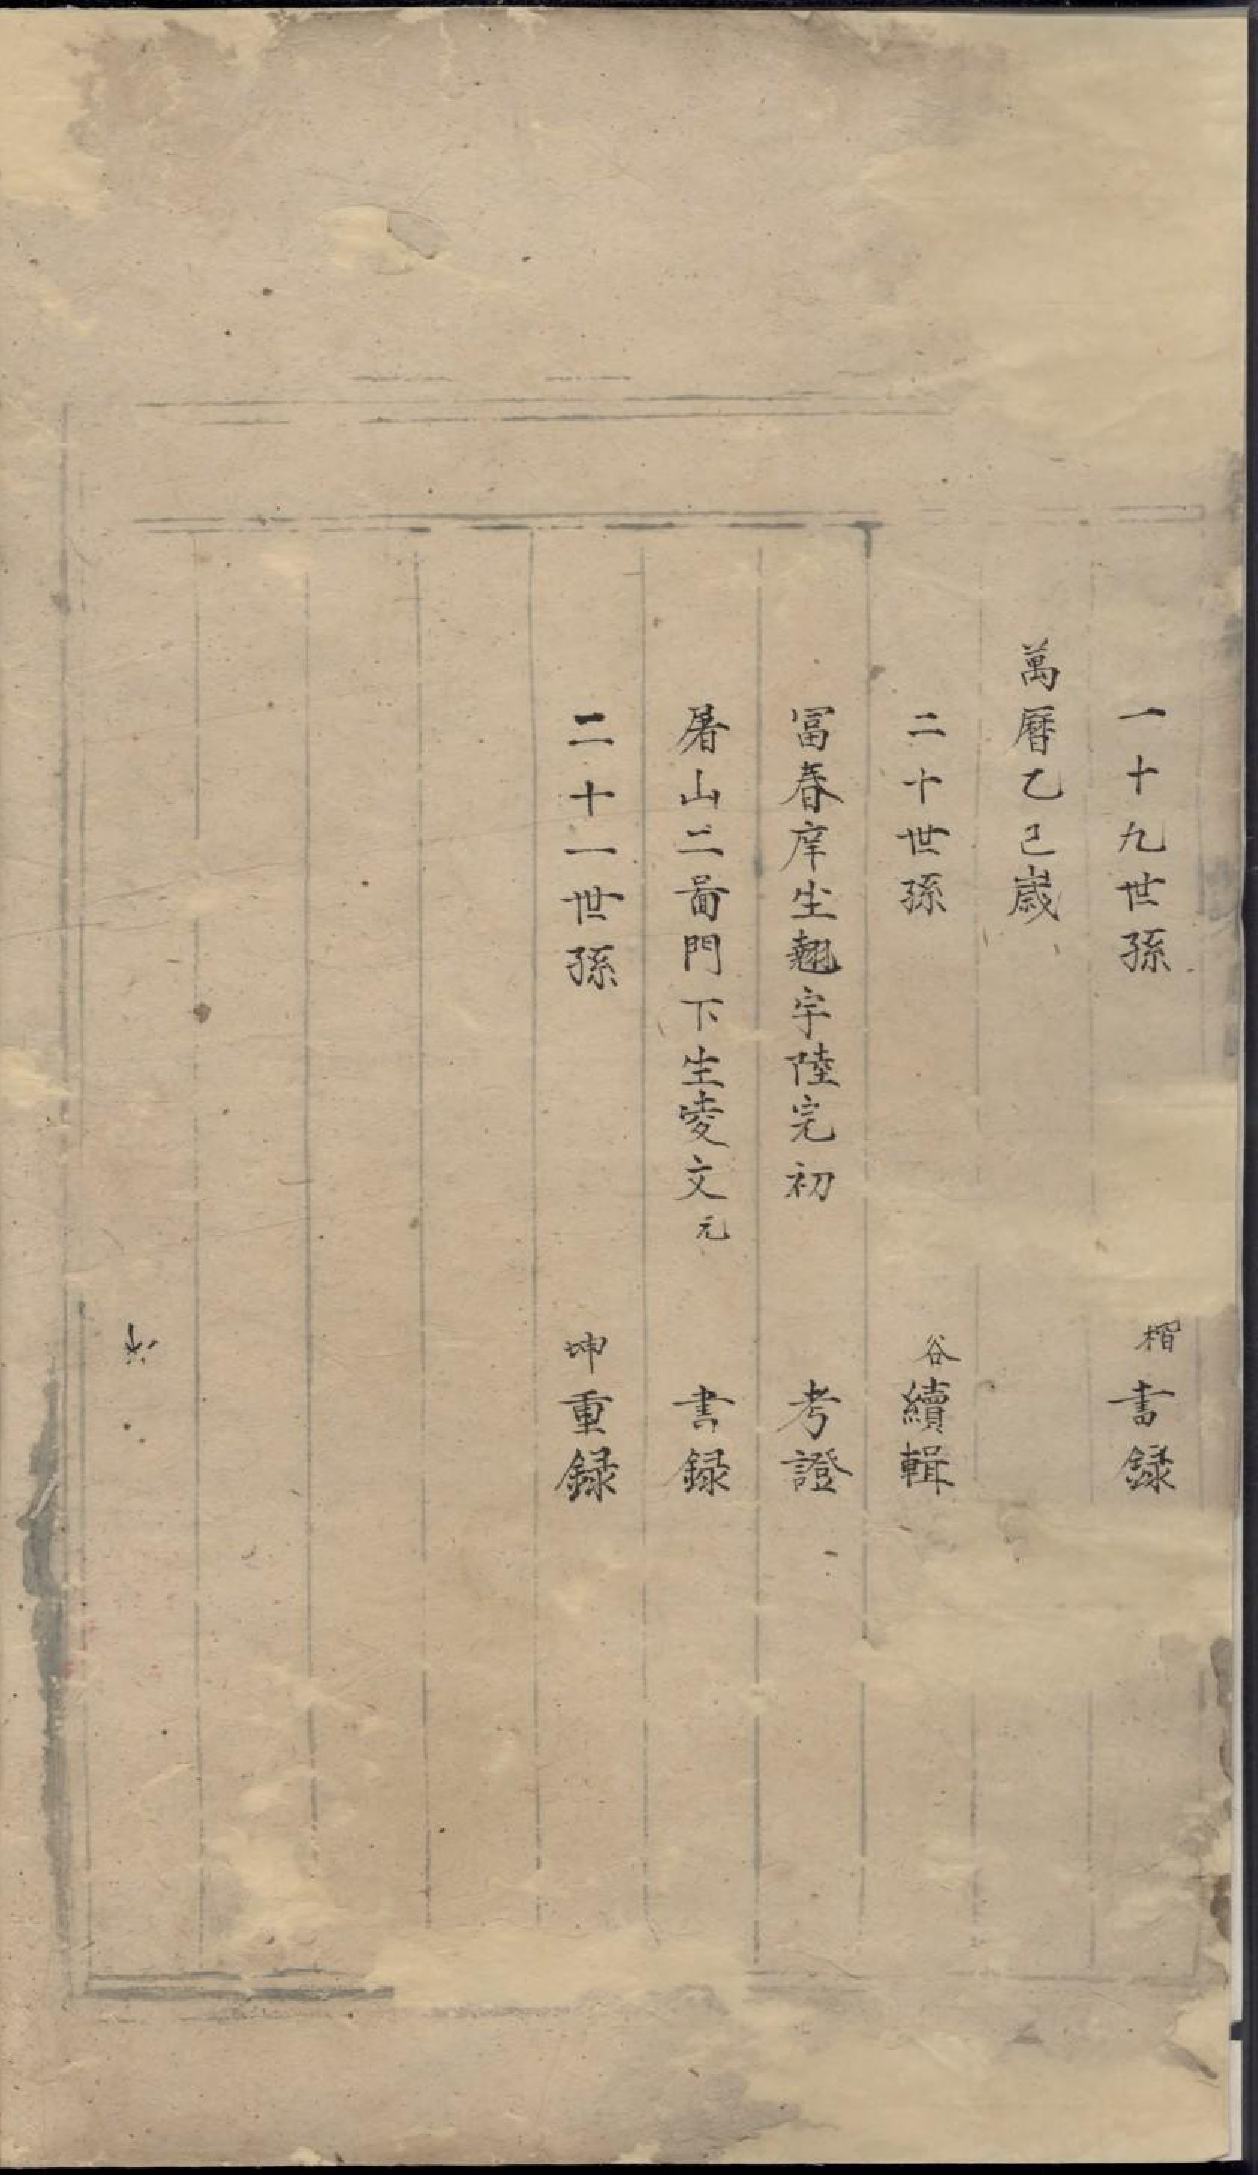 一十九世孫 楷書錄
萬曆乙巳歲
二十世孫 谷續輯
冨春庠生翹宇陸完初 考證
屠山二啚門下生夌文元 書錄
二十一世孫 坤重錄